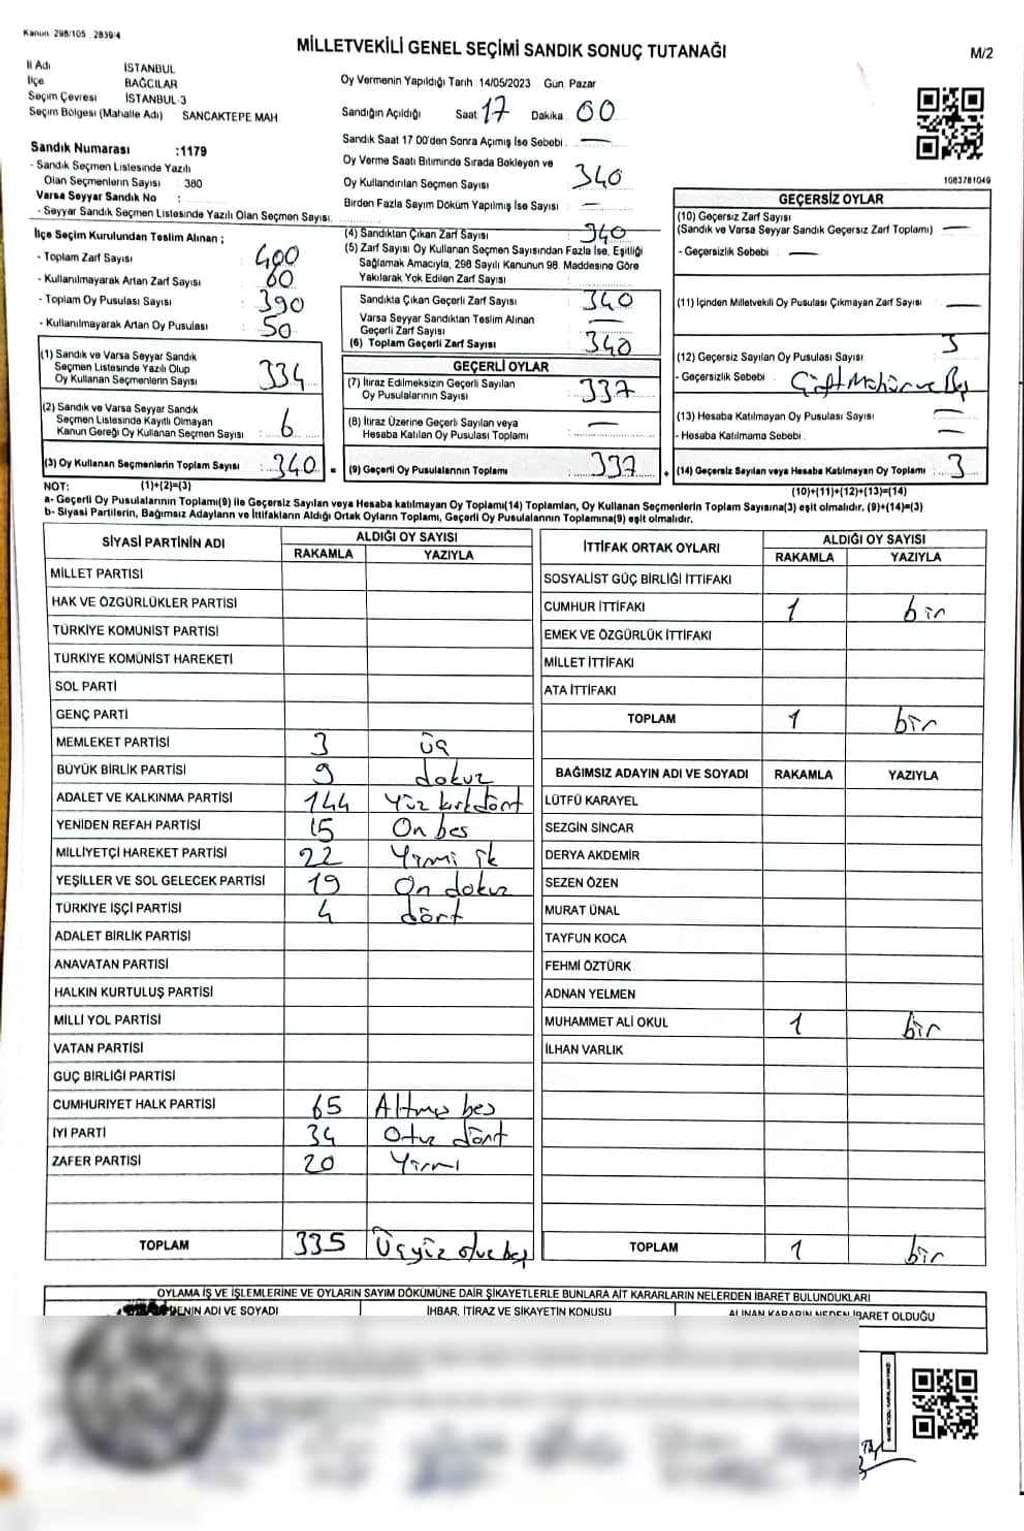 Kanun 298/105 . 2839/4
MİLLETVEKİLİ GENEL SEÇİMİ SANDIK SONUÇ TUTANAĞI
M/2
İl Adı İSTANBUL
İlçe BAĞCILAR
Seçim Çevresi İSTANBUL-3
Seçim Bölgesi (Mahalle Adı) SANCAKTEPE MAH
Oy Vermenin Yapıldığı Tarih 14/05/2023 Gün Pazar
Sandığın Açıldığı Saat 17 Dakika 00
Sandık Saat 17 00'den Sonra Açımış İse Sebebi —
Oy Verme Saati Bitiminde Sırada Bekleyen ve
Oy Kullandırılan Seçmen Sayısı 340
Birden Fazla Sayım Döküm Yapılmış İse Sayısı —
1083781049
Sandık Numarası :1179
- Sandık Seçmen Listesinde Yazılı
Olan Seçmenlerin Sayısı : 380
Varsa Seyyar Sandık No :
- Seyyar Sandık Seçmen Listesinde Yazılı Olan Seçmen Sayısı.
İlçe Seçim Kurulundan Teslim Alınan ;
- Toplam Zarf Sayısı : 400
- Kullanılmayarak Artan Zarf Sayısı : 60
- Toplam Oy Pusulası Sayısı : 390
- Kullanılmayarak Artan Oy Pusulası : 50
(1) Sandık ve Varsa Seyyar Sandık
Seçmen Listesinde Yazılı Olup
Oy Kullanan Seçmenlerin Sayısı : 334
(2) Sandık ve Varsa Seyyar Sandık
Seçmen Listesinde Kayıtlı Olmayan
Kanun Gereği Oy Kullanan Seçmen Sayısı : 6
(3) Oy Kullanan Seçmenlerin Toplam Sayısı : 340 =
(4) Sandıktan Çıkan Zarf Sayısı : 340
(5) Zarf Sayısı Oy Kullanan Seçmen Sayısından Fazla İse, Eşitliği
Sağlamak Amacıyla, 298 Sayılı Kanunun 98. Maddesine Göre
Yakılarak Yok Edilen Zarf Sayısı :
Sandıkta Çıkan Geçerli Zarf Sayısı : 340
Varsa Seyyar Sandıktan Teslim Alınan
Geçerli Zarf Sayısı : —
(6) Toplam Geçerli Zarf Sayısı : 340
GEÇERLİ OYLAR
(7) İtiraz Edilmeksizin Geçerli Sayılan
Oy Pusulalarının Sayısı : 337
(8) İtiraz Üzerine Geçerli Sayılan veya
Hesaba Katılan Oy Pusulası Toplamı : —
(9) Geçerli Oy Pusulalarının Toplamı : 337 +
GEÇERSİZ OYLAR
(10) Geçersiz Zarf Sayısı
(Sandık ve Varsa Seyyar Sandık Geçersiz Zarf Toplamı) : —
- Geçersizlik Sebebi : —
(11) İçinden Milletvekili Oy Pusulası Çıkmayan Zarf Sayısı : —
(12) Geçersiz Sayılan Oy Pusulası Sayısı : 3
- Geçersizlik Sebebi : Çift Mühür ve Boş
(13) Hesaba Katılmayan Oy Pusulası Sayısı : —
- Hesaba Katılmama Sebebi : —
(14) Geçersiz Sayılan veya Hesaba Katılmayan Oy Toplamı : 3
NOT: (1)+(2)=(3)
(10)+(11)+(12)+(13)=(14)
a- Geçerli Oy Pusulalarının Toplamı(9) ile Geçersiz Sayılan veya Hesaba katılmayan Oy Toplamı(14) Toplamları, Oy Kullanan Seçmenlerin Toplam Sayısına(3) eşit olmalıdır. (9)+(14)=(3)
b- Siyasi Partilerin, Bağımsız Adayların ve İttifakların Aldığı Ortak Oyların Toplamı, Geçerli Oy Pusulalarının Toplamına(9) eşit olmalıdır.
SİYASİ PARTİNİN ADI ALDIĞI OY SAYISI
RAKAMLA YAZIYLA
MİLLET PARTİSİ
HAK VE ÖZGÜRLÜKLER PARTİSİ
TÜRKİYE KOMÜNİST PARTİSİ
TÜRKİYE KOMÜNİST HAREKETİ
SOL PARTİ
GENÇ PARTİ
MEMLEKET PARTİSİ 3 üç
BÜYÜK BİRLİK PARTİSİ 9 dokuz
ADALET VE KALKINMA PARTİSİ 144 Yüz kırkdört
YENİDEN REFAH PARTİSİ 15 On beş
MİLLİYETÇİ HAREKET PARTİSİ 22 Yirmi ik
YEŞİLLER VE SOL GELECEK PARTİSİ 19 On dokuz
TÜRKİYE İŞÇİ PARTİSİ 4 dört
ADALET BİRLİK PARTİSİ
ANAVATAN PARTİSİ
HALKIN KURTULUŞ PARTİSİ
MİLLİ YOL PARTİSİ
VATAN PARTİSİ
GÜÇ BİRLİĞİ PARTİSİ
CUMHURİYET HALK PARTİSİ 65 Altmış beş
İYİ PARTİ 34 Otuz dört
ZAFER PARTİSİ 20 Yirmi
TOPLAM 335 Üçyüz otuz beş
İTTİFAK ORTAK OYLARI ALDIĞI OY SAYISI
RAKAMLA YAZIYLA
SOSYALİST GÜÇ BİRLİĞİ İTTİFAKI
CUMHUR İTTİFAKI 1 bir
EMEK VE ÖZGÜRLÜK İTTİFAKI
MİLLET İTTİFAKI
ATA İTTİFAKI
TOPLAM 1 bir
BAĞIMSIZ ADAYIN ADI VE SOYADI RAKAMLA YAZIYLA
LÜTFÜ KARAYEL
SEZGİN SİNCAR
DERYA AKDEMİR
SEZEN ÖZEN
MURAT ÜNAL
TAYFUN KOCA
FEHMİ ÖZTÜRK
ADNAN YELMEN
MUHAMMET ALİ OKUL 1 bir
İLHAN VARLIK
TOPLAM 1 bir
OYLAMA İŞ VE İŞLEMLERİNE VE OYLARIN SAYIM DÖKÜMÜNE DAİR ŞİKAYETLERLE BUNLARA AİT KARARLARIN NELERDEN İBARET BULUNDUKLARI
DENİN ADI VE SOYADI İHBAR, İTİRAZ VE ŞİKAYETİN KONUSU ALINAN KARARIN NEDEN İBARET OLDUĞU